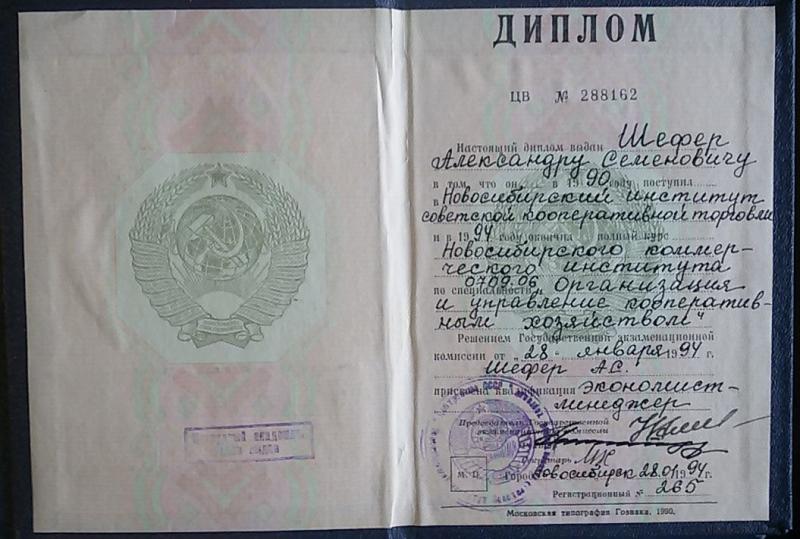 ДИПЛОМ
ЦВ № 288162
Настоящий диплом выдан Шефер
Александру Семеновичу
в том, что он в 1990 году поступил
в Новосибирский институт
советской кооперативной торговли
и в 1994 году окончил полный курс
Новосибирского коммер-
ческого института
по специальности 0709.06 "Организация
и управление кооператив-
ным хозяйством"
Решением Государственной экзаменационной
комиссии от "28" января 1994 г.
Шефер А.С.
присвоена квалификация экономист-
менеджер
Председатель Государственной
экзаменационной комиссии
М. П. Город Новосибирск 28.01 1994 г.
Регистрационный № 265
Московская типография Гознака. 1990.